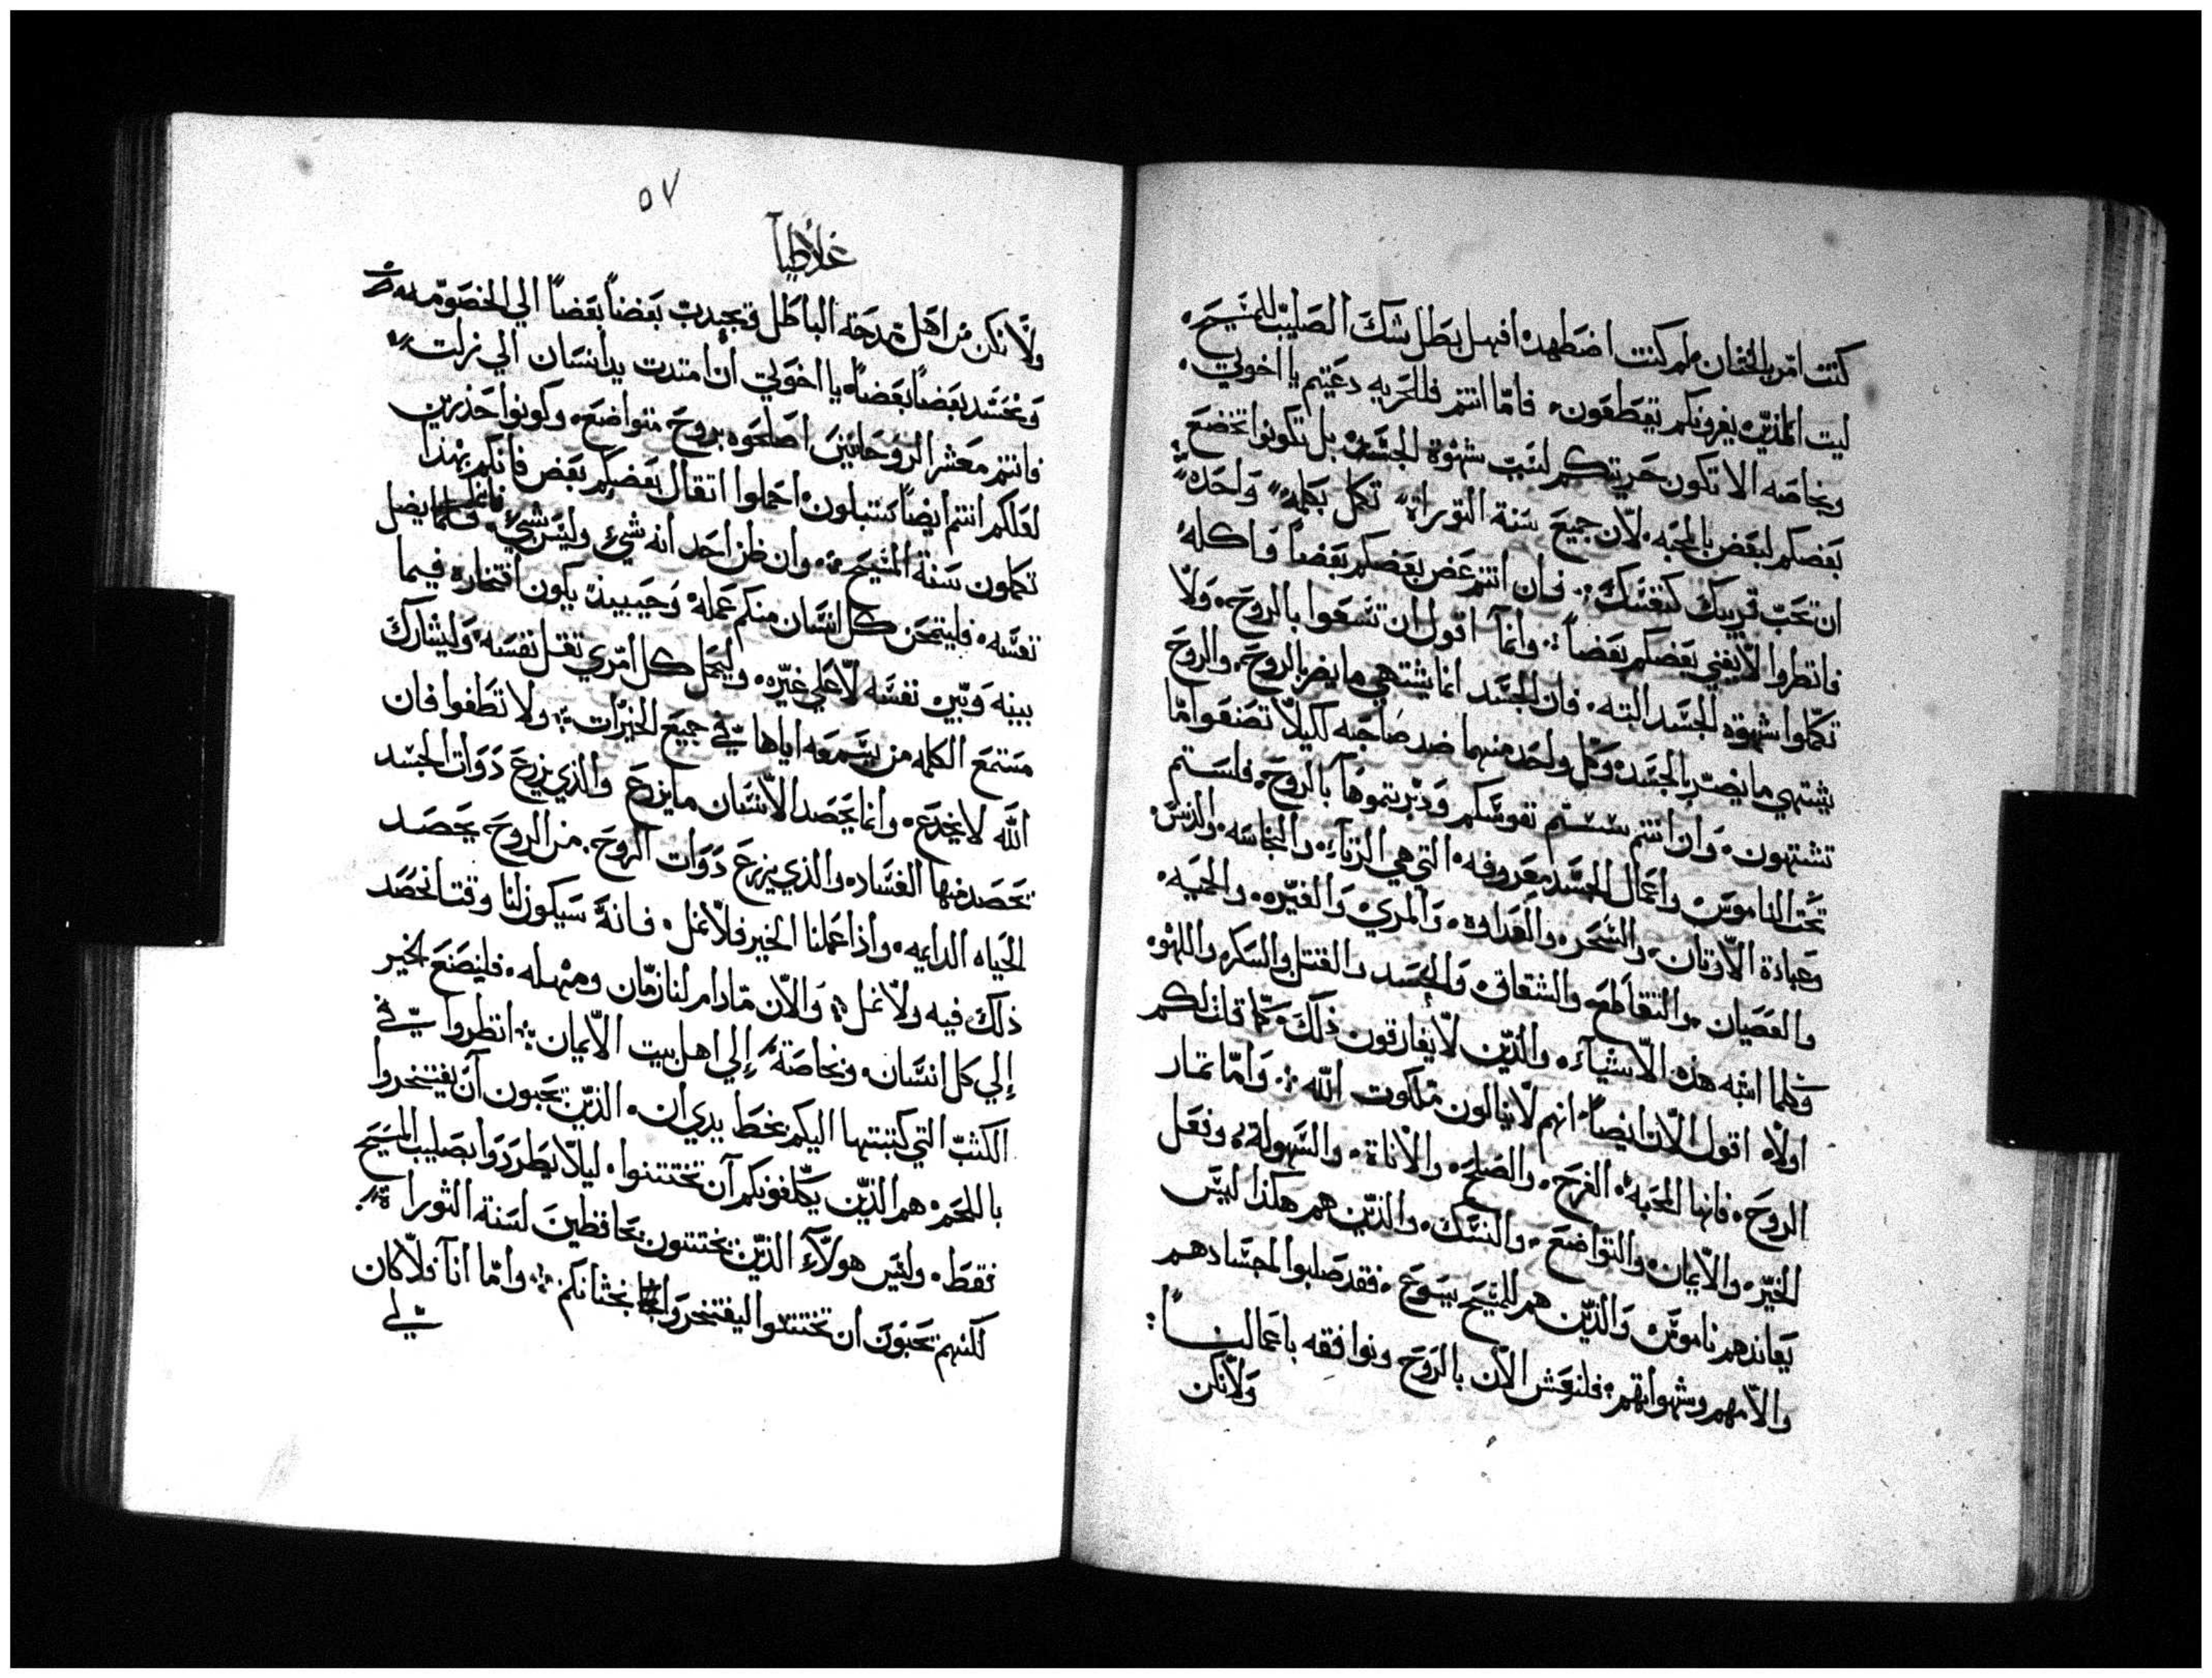 كنت امر بالختان فلم كنت اضطهد افهل بطل شك الصليب للمسيح
ليت الذين يغرونكم يقطعون فاما انتم فللحريه دعيتم يا اخوتي
وبخاصه الا تكون حريتكم لسبب شهوة الجسد بل تكونوا تخضع
بعضكم لبعض بالمحبه لان جميع سنة التوراة تكمل بكلمة واحدة
ان تحب قريبك كنفسك فان انتم عض بعضكم بعضاً واكله
فانظروا لا يفني بعضكم بعضاً وانما اقول ان تسعوا بالروح ولا
تكملوا شهوة الجسد البته فان الجسد انما يشتهي ما يضر بالروح والروح
يشتهي ما يضر بالجسد وكل واحد منهما ضد صاحبه لكيلا تصنعوا ما
تشتهون وان انتم سستم نفوسكم ودبرتموها بالروح فلستم
تحت الناموس واعمال الجسد معروفه التي هي الزناء والنجاسه والدنس
وعبادة الاوثان والسحر والعداوة والمري والغيره والحميه
والعصيان والتقاطع والشقاق والحسد والقتل والسكر واللهو
وكلما اشبه هذه الاشياء والذين لا يفارقون ذلك كما قلت لكم
اولاً اقول الان ايضاً انهم لا ينالون ملكوت الله واما ثمار
الروح فانها المحبه الفرح والصلح والاناة والسهولة وفعل
الخير والايمان والتواضع والنسك والذين هم هكذا ليس
يعاندهم ناموس والذين هم للمسيح يسوع فقد صلبوا اجسادهم
والامهم وشهواتهم فلنعش الان بالروح ونوافقه باعمالنا
ولا نكن
٥٧
غلاطيا
ولا نكن من اهل مدحة الباطل فيجذب بعضنا بعضاً الي الخصومه
ونحسد بعضنا بعضاً يا اخوتي ان امتدت يد انسان الي زلت
فانتم معشر الروحانيين اصلحوه بروح متواضع وكونوا حذرين
لعلكم انتم ايضاً تبتلون احملوا اثقال بعضكم بعض فانكم بهذا
تكملون سنة المسيح وان ظن احد انه شيء وليس شيء فانما يضل
نفسه فليمتحن كل انسان منكم عمله وحينيذ يكون افتخاره فيما
بينه وبين نفسه لا علي غيره وليحمل كل امري ثقل نفسه وليشارك
مستمع الكلمه من يسمعه اياها في جميع الخيرات ولا تطغوا فان
الله لا يخدع وانما يحصد الانسان ما يزرع والذي يزرع ذوات الجسد
تحصد منها الفساد والذي يزرع ذوات الروح من الروح يحصد
الحياه الدايمه واذا عملنا الخير فلا نمل فانه سيكون لنا وقت نحصد
ذلك فيه ولا نمل والان ما دام لنا زمان ومهله فليصنع الخير
إلي كل انسان وبخاصة إلي اهل بيت الايمان انظروا في
الكتب التي كتبتها اليكم بخط يدي ان الذين يحبون ان يفتخروا
باللحم هم الذين يكلفونكم ان تختتنوا ليلا يطردوا بصليب المسيح
فقط وليس هولاء الذين يختتنون بحافظين لسنة التوراة
لكنهم يحبون ان تختتنوا ليفتخروا بختانكم واما انا فلا كان
لي